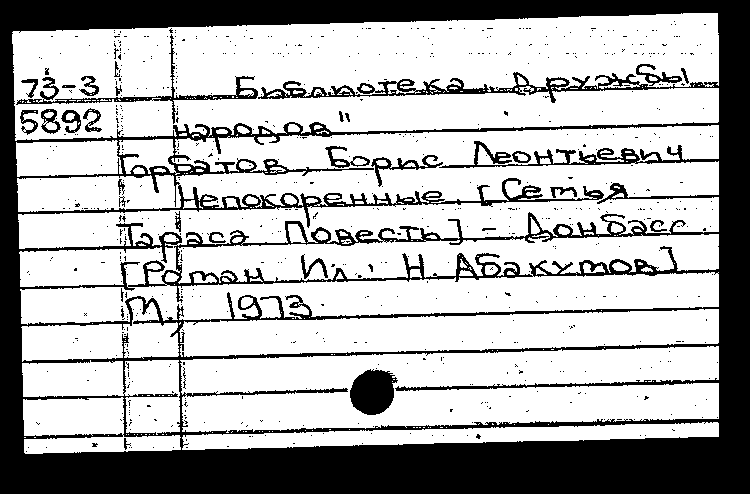 73-3 Библиотека „Дружбы
5892 народов"
Горбатов, Борис Леонтьевич
Непокоренные. [Семья
Тараса Повесть] - Донбасс.
[Роман. Ил.: Н. Абакумов]
М., 1973.